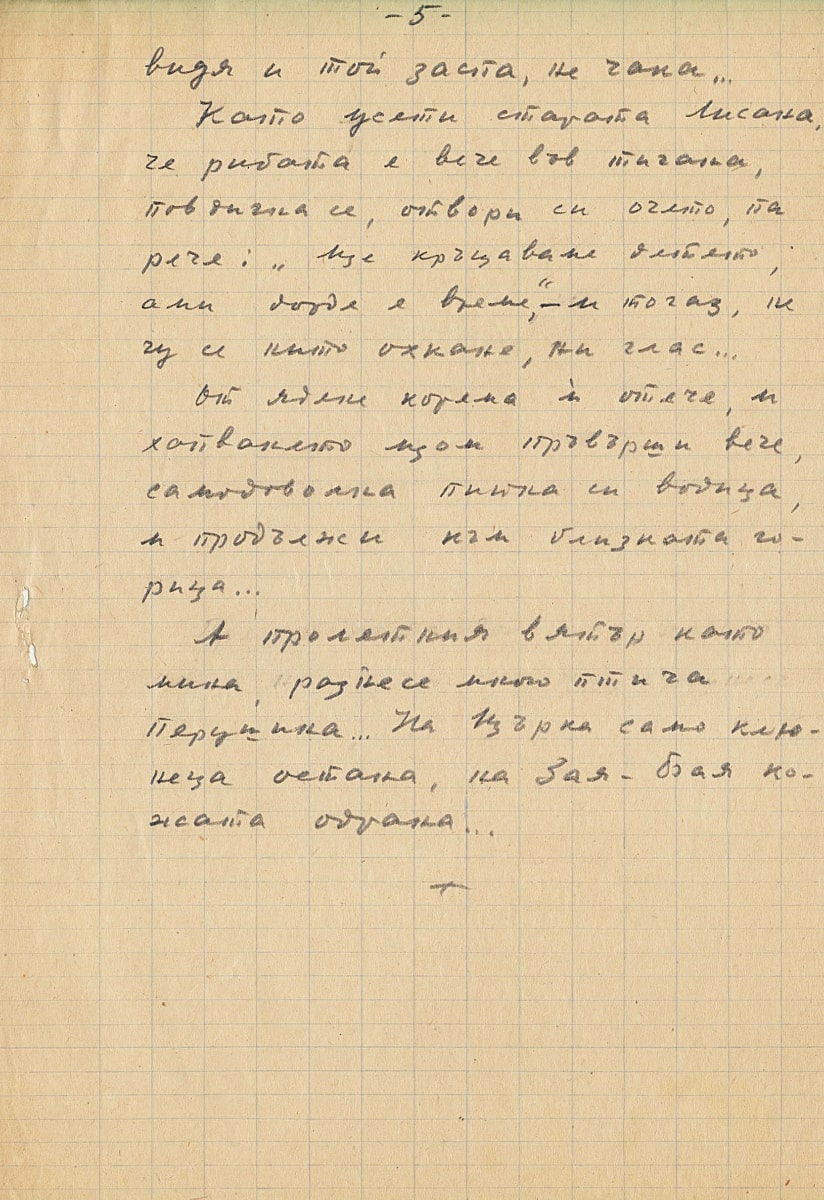 -5-
видя и той заспа, не чака...
Като усети старата Лисана,
че рибата е вече във тигана,
повдигна се, отвори си очето, па
рече: „Ще кръщаваме детето,
ами дорде е време," – и тогаз, не
чу се нито охкане, ни глас...
От ядене корема ѝ отече, и
хапването щом привърши вече,
самодоволна пийна си водица,
и продължи към близката го-
рица...
А пролетния вятър като
мина, разнесе много птича
перушина... На Щърка само клю-
неца остана, на Зая-бая ко-
жата одрана...